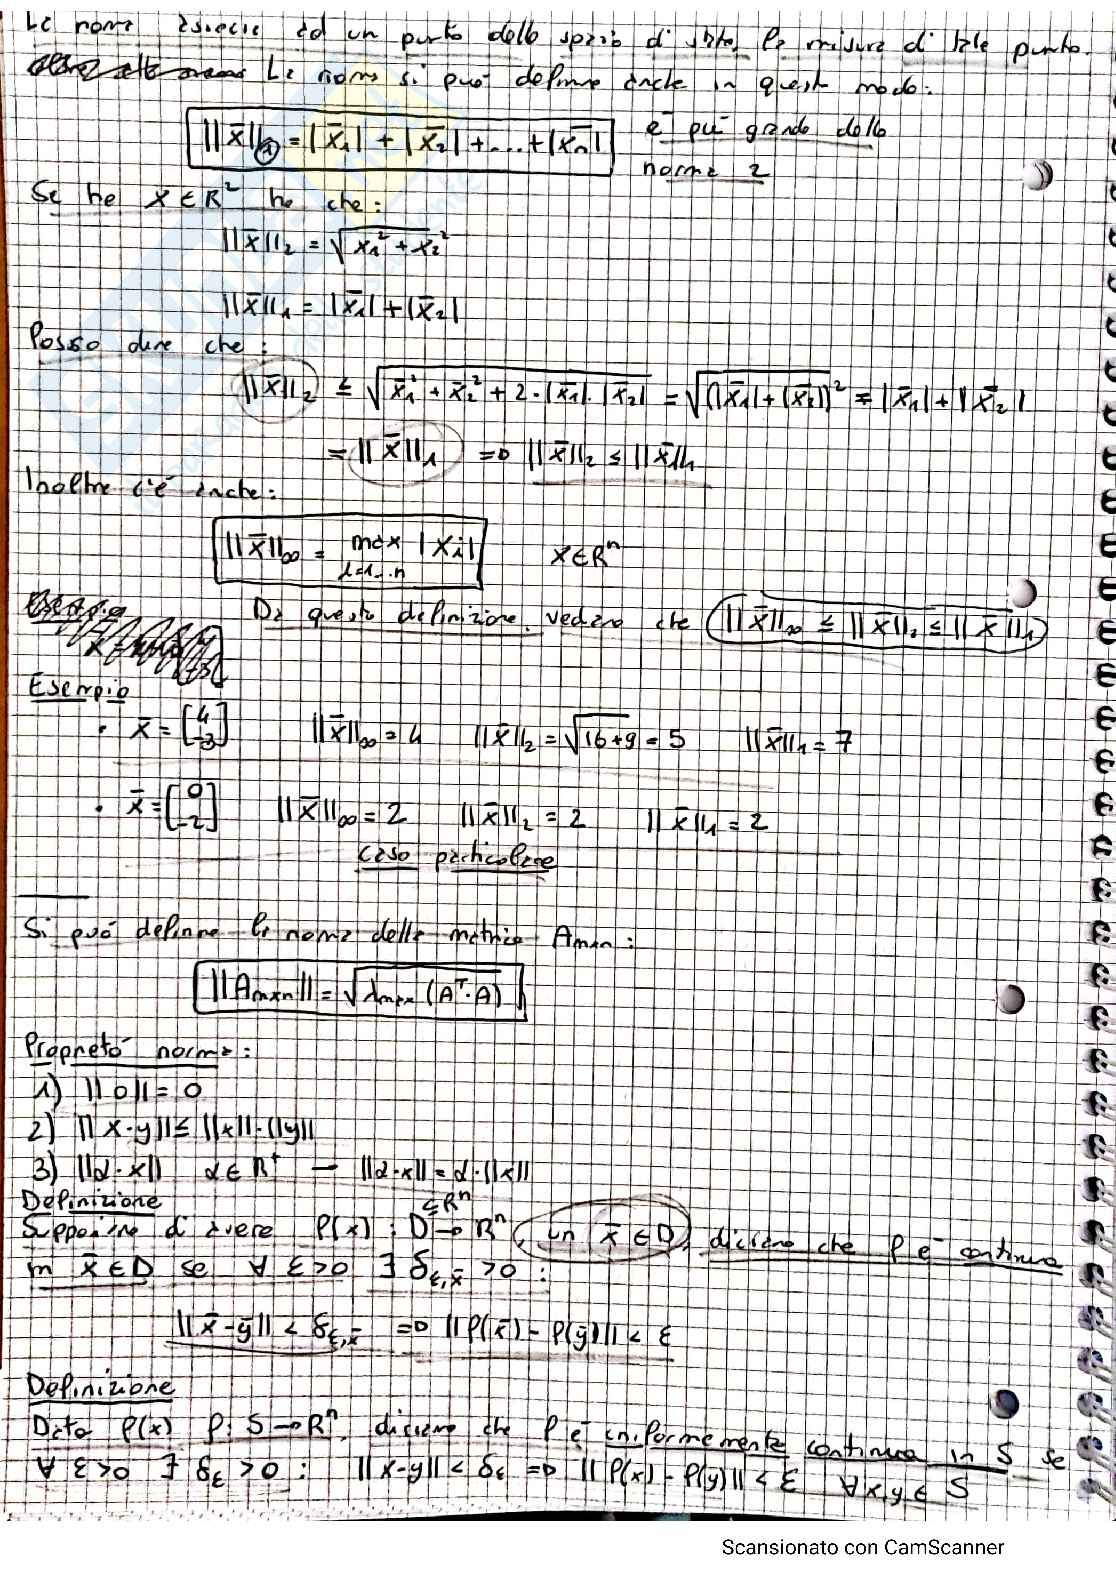 La norma associa ad un punto dello spazio di stato, la misura di tale punto.
La norma si può definire anche in questo modo:
||x̄||₁ = |x̄₁| + |x̄₂| + .... + |x̄ₙ| è più grande della
norma 2
Se ho x ∈ R² ho che:
||x̄||₂ = √(x̄₁² + x̄₂²)
||x̄||₁ = |x̄₁| + |x̄₂|
Posso dire che:
||x̄||₂ ≤ √(x̄₁² + x̄₂² + 2·|x̄₁|·|x̄₂|) = √(|x̄₁| + |x̄₂|)² = |x̄₁| + |x̄₂|
= ||x̄||₁ => ||x̄||₂ ≤ ||x̄||₁
Inoltre c'è anche:
||x̄||∞ = max |xᵢ| x ∈ Rⁿ
i=1...n
Da questa definizione, vediamo che ||x̄||∞ ≤ ||x̄||₂ ≤ ||x̄||₁
Esempio
• x̄ = [4 -3] ||x̄||∞ = 4 ||x̄||₂ = √(16+9) = 5 ||x̄||₁ = 7
• x̄ = [0 -2] ||x̄||∞ = 2 ||x̄||₂ = 2 ||x̄||₁ = 2
caso particolare
Si può definire la norma della matrice Amxn:
||Amxn|| = √(λmax (Aᵀ·A))
Proprietà norma:
1) ||0|| = 0
2) ||x·y|| ≤ ||x||·||y||
3) ||α·x|| α ∈ R⁺ — ||α·x|| = α·||x||
Definizione
⊆ Rⁿ
Supponiamo di avere f(x) : D → Rⁿ, un x̄ ∈ D, diciamo che f è continua
in x̄ ∈ D se ∀ ε>0 ∃ δε,x̄ > 0 :
||x̄ - ȳ|| < δε,x̄ => ||f(x̄) - f(ȳ)|| < ε
Definizione
Data f(x) f: S → Rⁿ, diciamo che f è uniformemente continua in S se
∀ ε>0 ∃ δε > 0 : ||x-y|| < δε => ||f(x) - f(y)|| < ε ∀x,y ∈ S
Scansionato con CamScanner